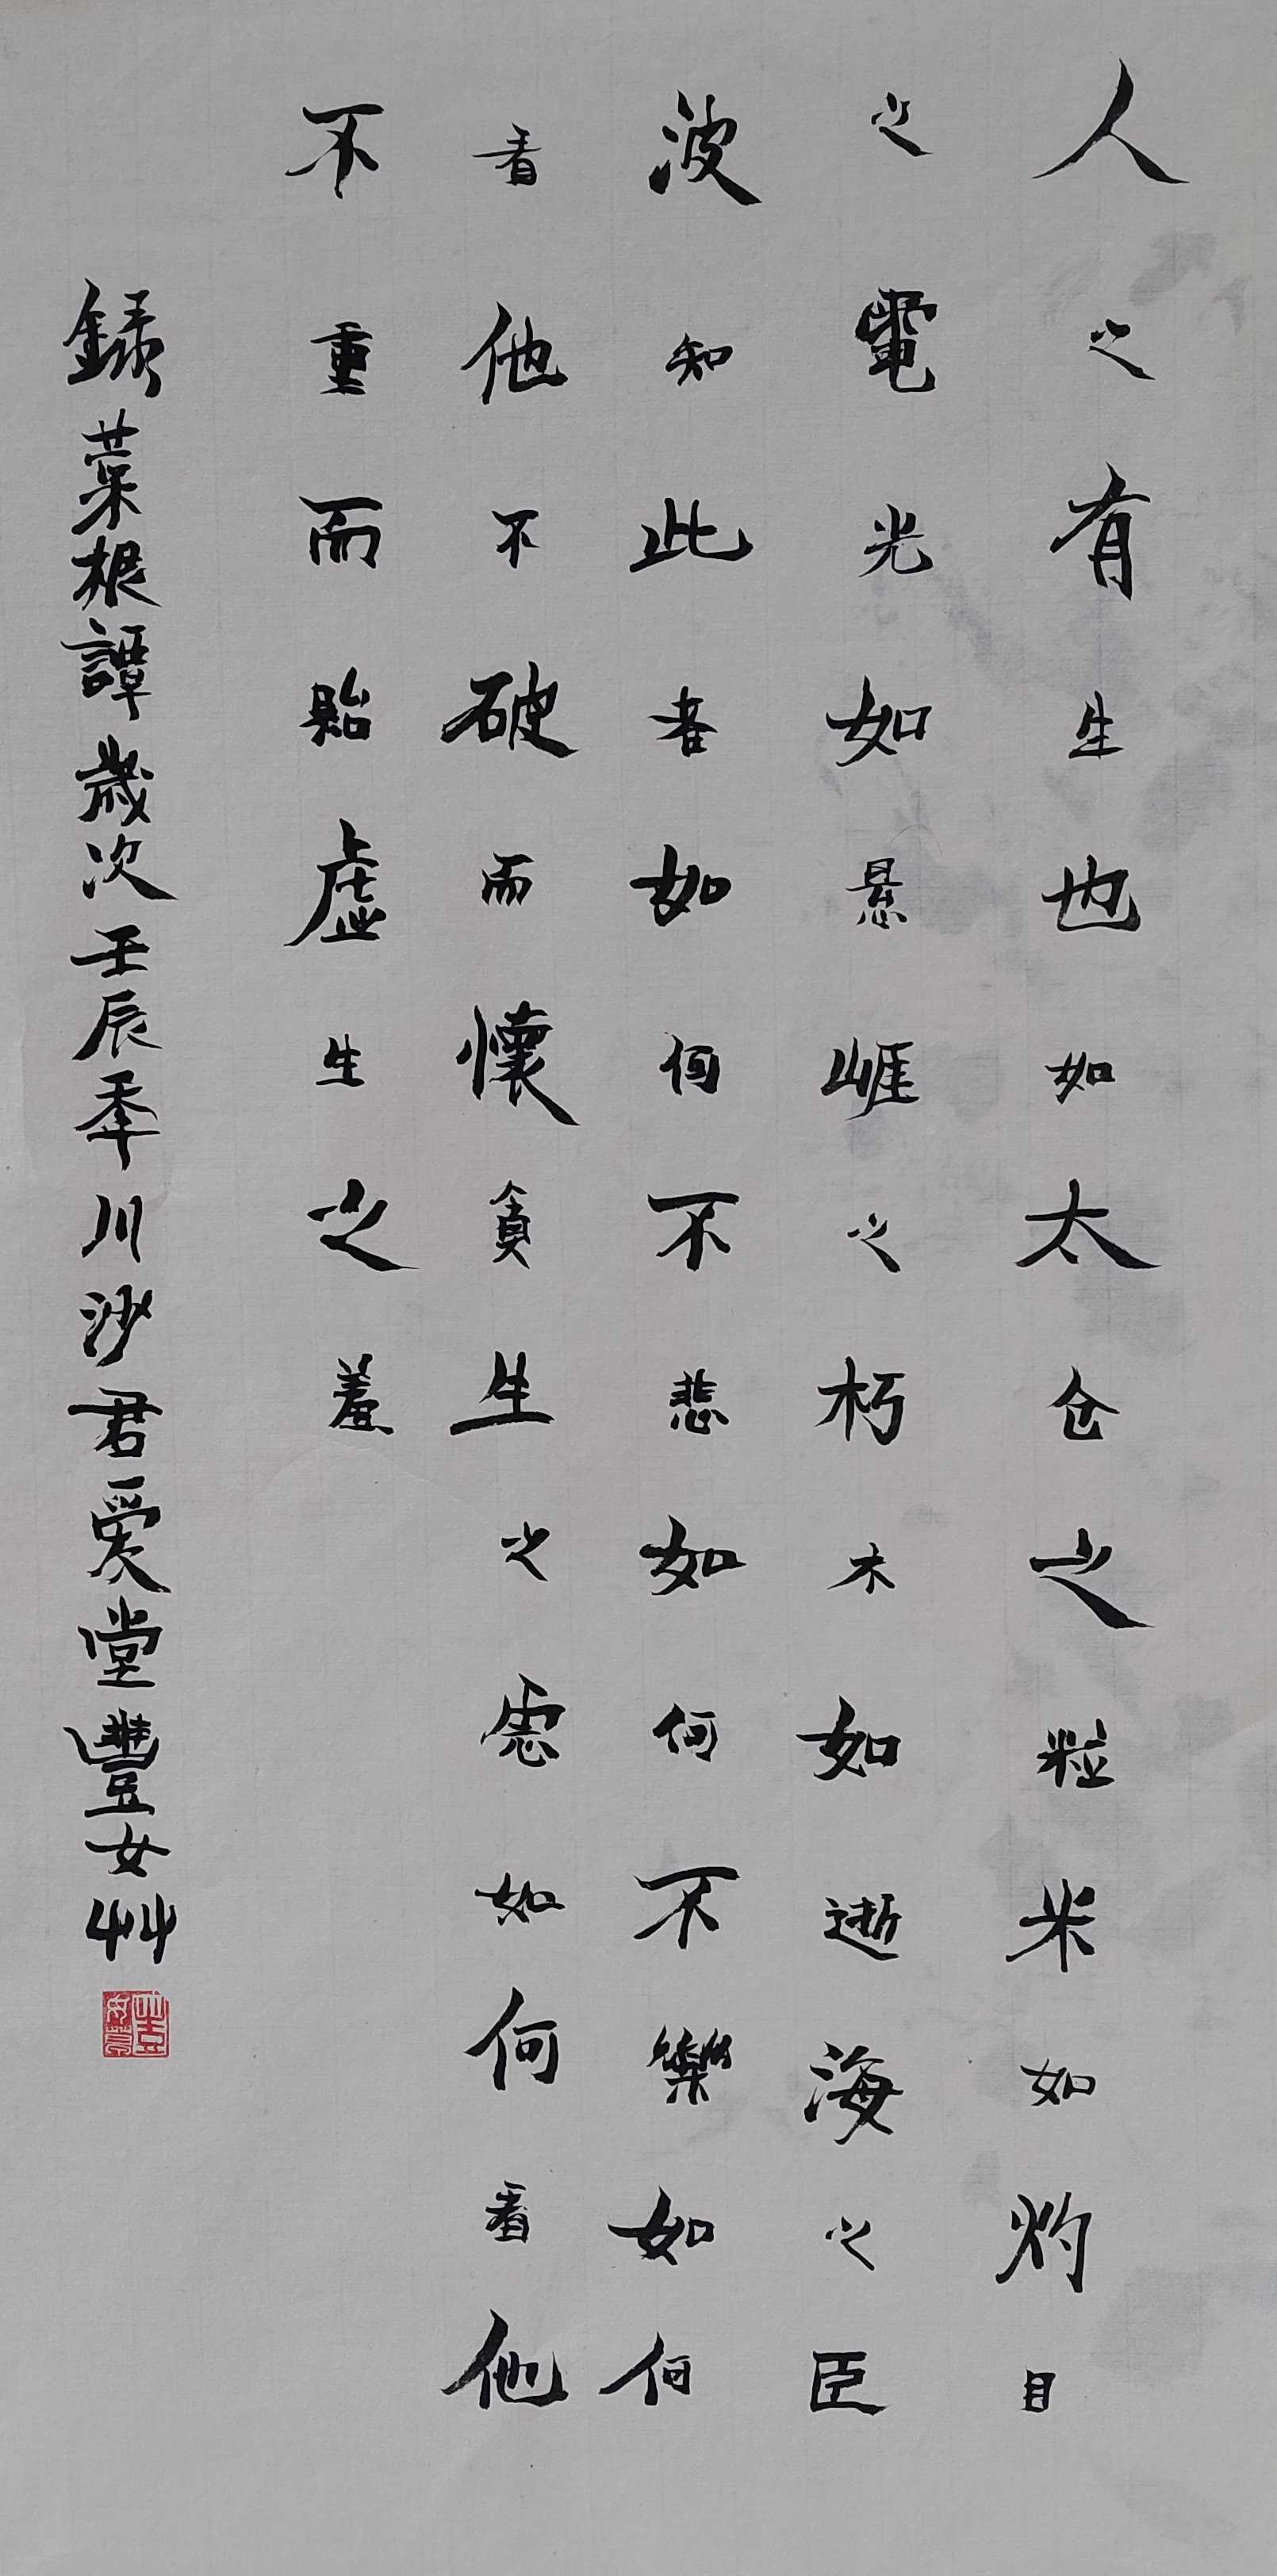 人之有生也如太仓之粒米如灼目
之電光如悬崕之朽木如逝海之臣
波知此者如何不悲如何不樂如何
看他不破而懷貪生之慮如何看他
不重而貽虚生之羞
録菜根譚歲次壬辰季川沙君爰堂豐女艸